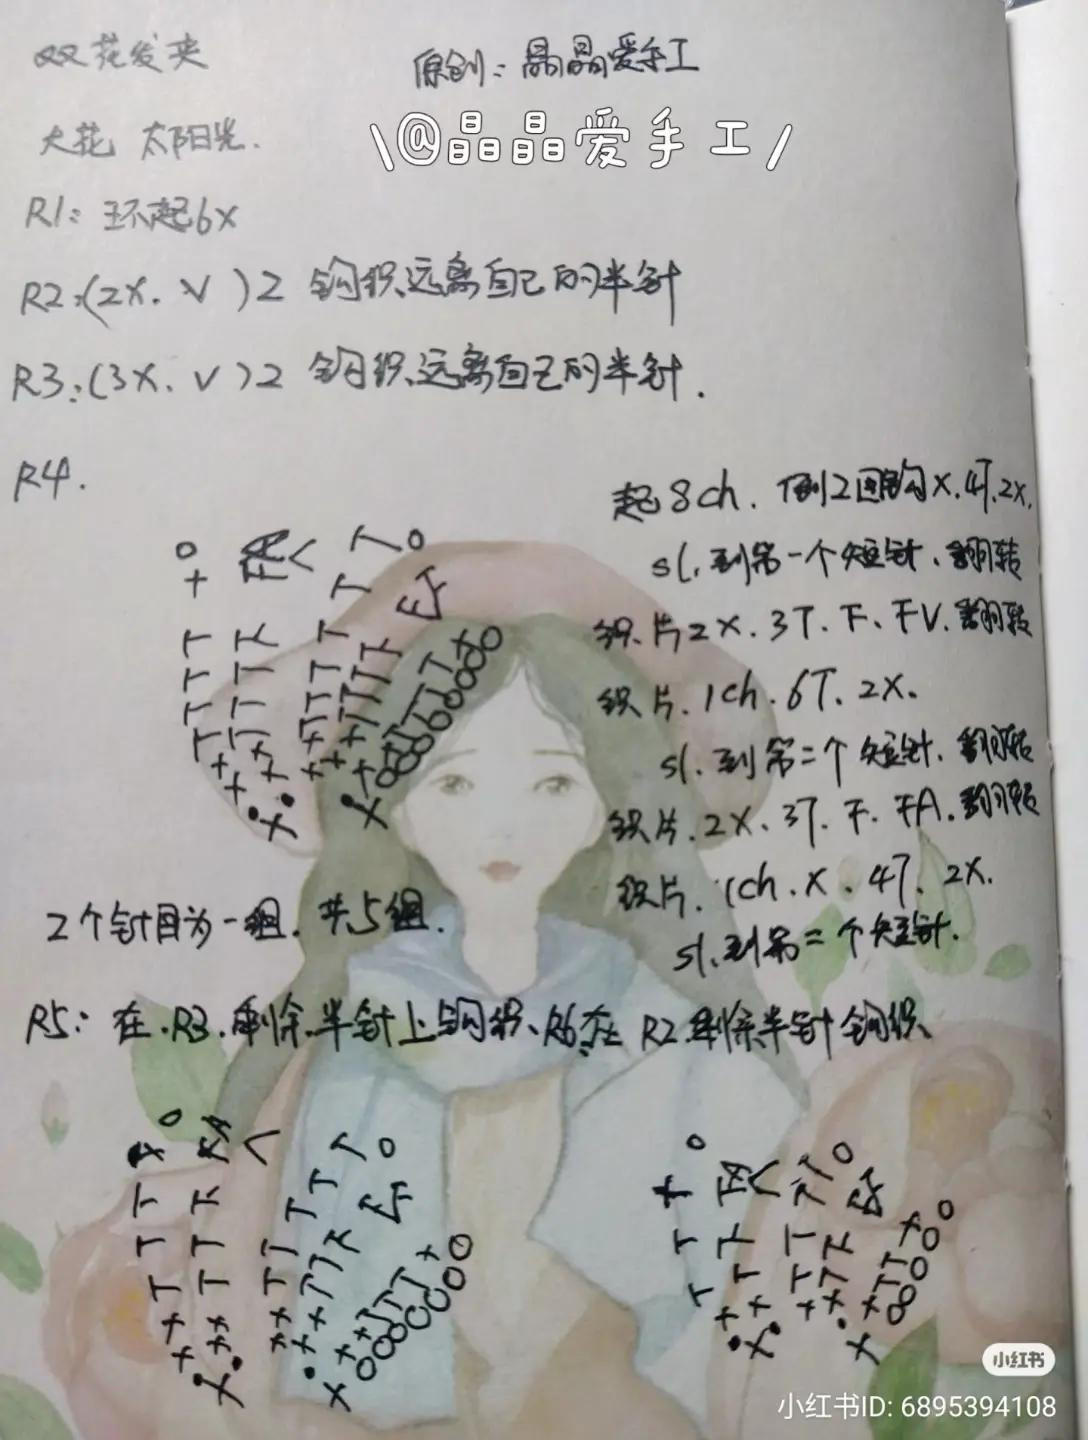 双花发夹
原创:晶晶爱手工
\@晶晶爱手工/
大花 太阳光.
R1: 环起6X
R2:(2X. V)2 钩织远离自己的半针
R3:(3X. V)2 钩织远离自己的半针.
R4.
起8ch. 倒2回钩X.4T.2X.
sl.到第一个短针.翻转
织片2X.3T.F.FV.翻转
织片.1ch.6T.2X.
sl.到第二个短针.翻转
织片.2X.3T.F.FA.翻转
织片.1ch.X.4T.2X.
sl.到第二个短针.
2个针目为一组.共5组.
R5: 在.R3.剩余半针上钩织、R6.在R2.剩余半针钩织、
小红书
小红书ID: 6895394108